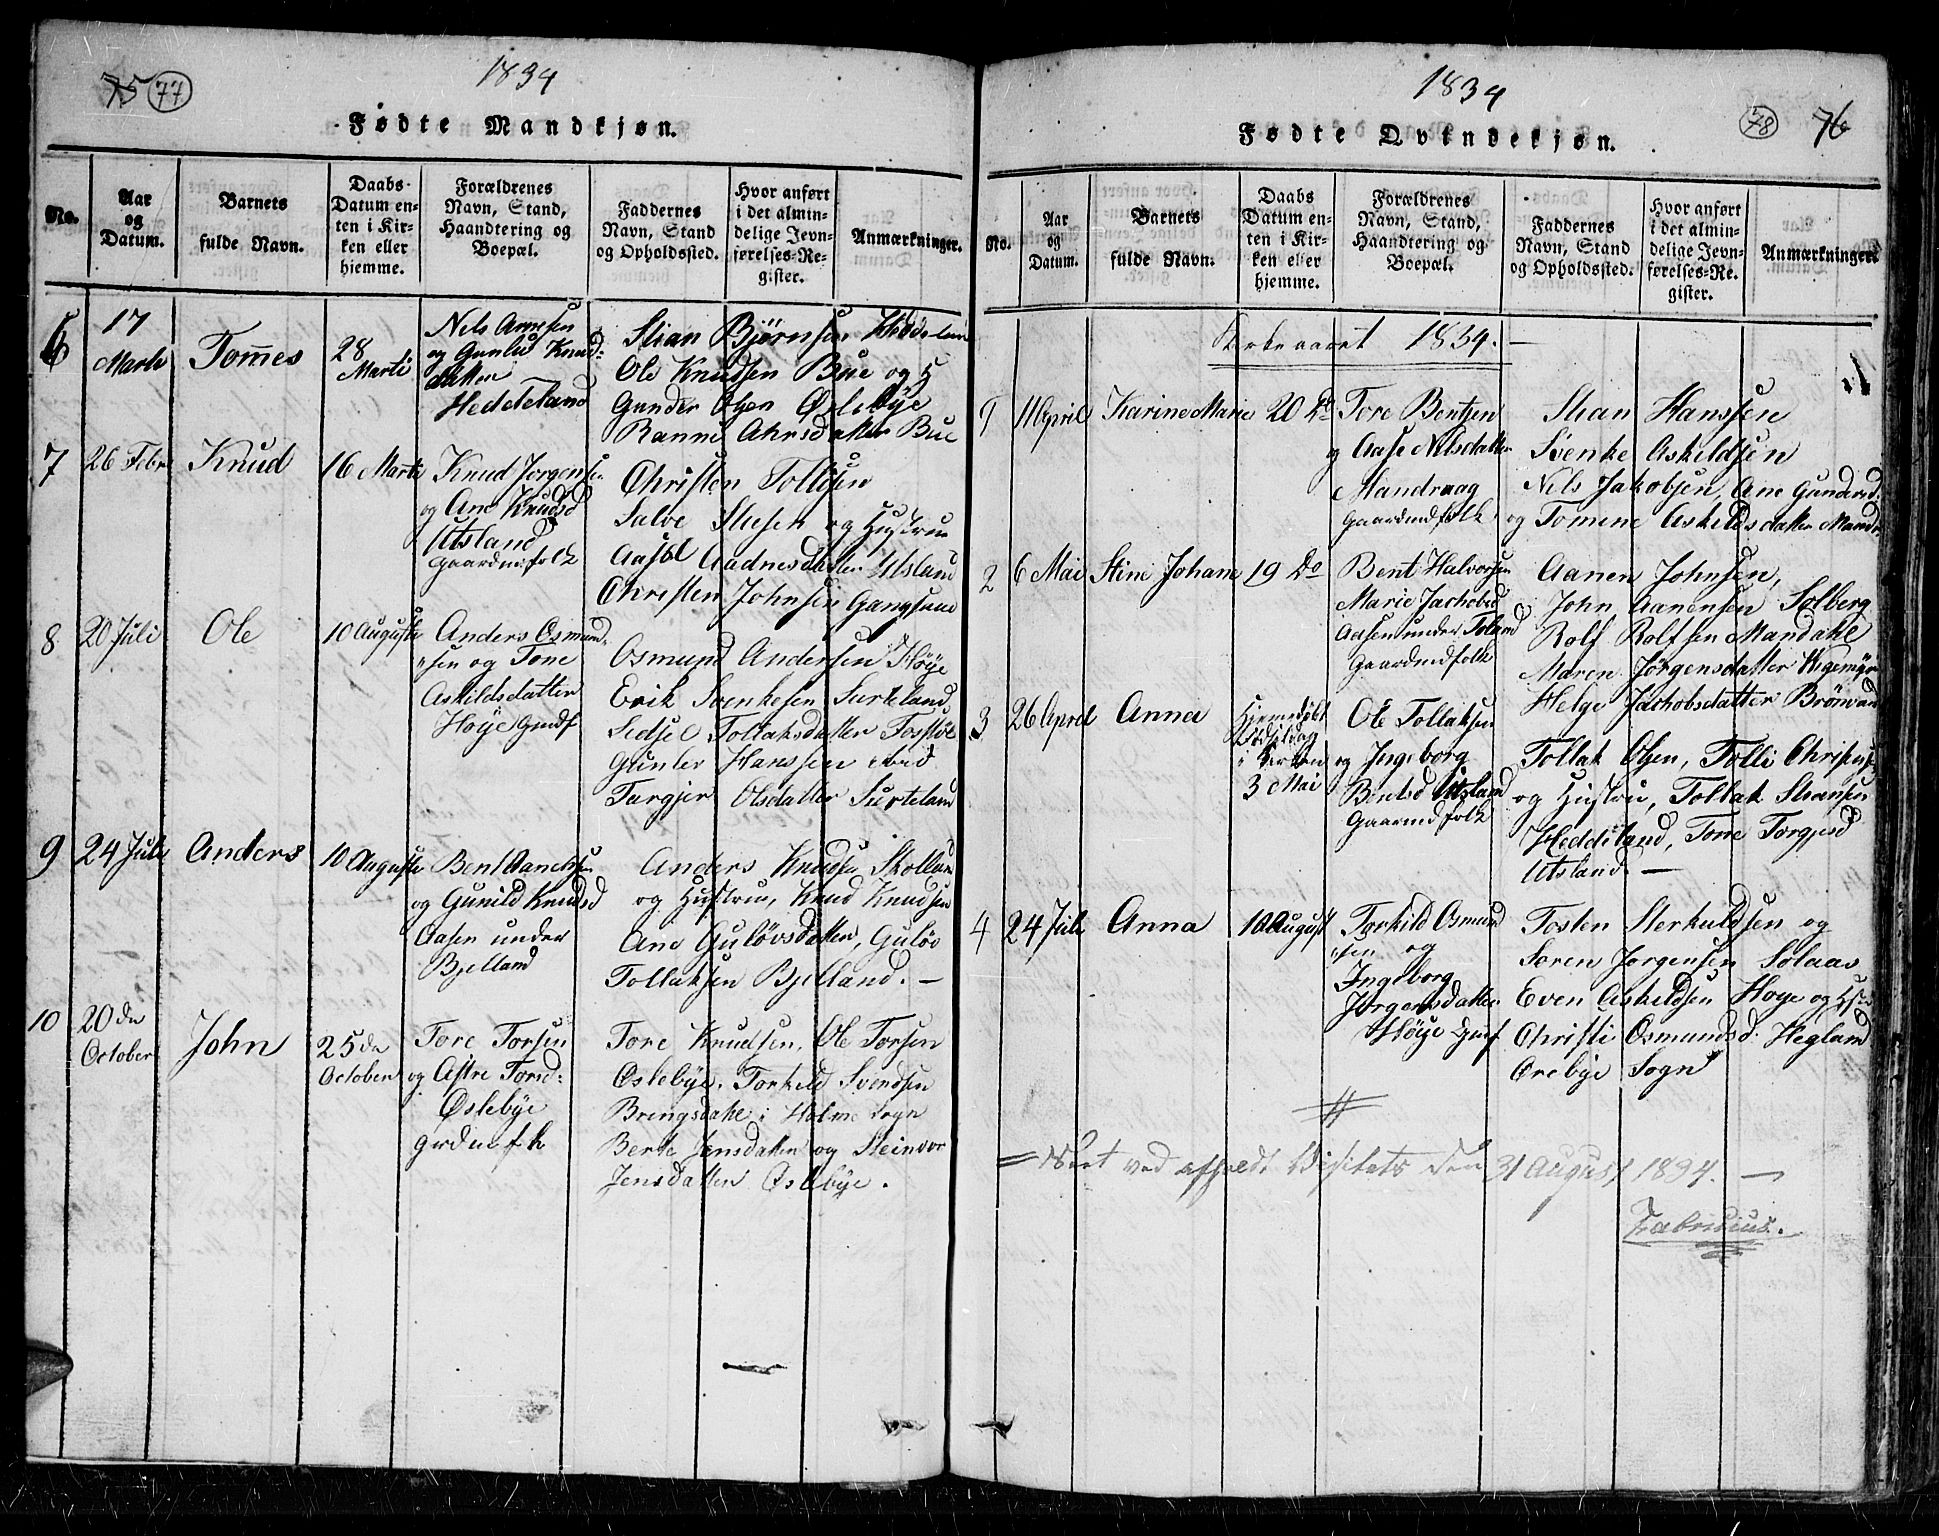 75 77
1834
Fødte Mandkjøn.
No.
Aar og Datum.
Barnets fulde Navn.
Daabs-Datum enten i Kirken eller hjemme.
Forældrenes Navn, Stand, Haandtering og Boepæl.
Faddernes Navn, Stand og Opholdssted.
Hvor anført i det almindelige Jevnførelses-Register.
Anmærkninger.
6
17 Marti
Tom̄es
28 Marti
Nels
og Gunlu Knuds-
datter
Heddeland
Stian Bjørnsen
Ole Knudsen Bue og
Gunder Olsen Øslebye
Ranni datter Bue
7
26 Febr
Knud
16 Marti
Knud Jorgensen
og Ane Knudsd
Utsland
gaardmdfolk
Christen Tollisen
Salve og Hustru
Aasel Aadnesdatter Utsland
Christen Johnsen
8
20 Juli
Ole
10 Auguste
Anders Osmund-
sen og Tone
Askildsdatter
Höye
Osmund Andersen Höye
Erik Svenkesen Surteland
Sidsel Tollaksdatter
Gunler Hanssen ibid
Targjer Olsdatter Surteland
9
24 Juli
Anders
10 Auguste
Bent
og Gunild Knudsd
Aasen under
Bjelland
Anders Knudsen
og Hustru, Knud Knudsen
Ane Gulövsdatter, Gulöv
Tollaksen Bjelland. —
10
20de October
John
25de October
Tore Torsen
og Astre Torsd:
Øslebye
Tore Knudsen, Ole Torsen
Oslebye, Torkild Svendsen
Bringsdahl i Holme Sogn
Berte Jensdatter og Steinvor
Jensdatter Øslebye.
1834
78 76
Fødte Qvindekjøn.
No.
Aar og Datum.
Barnets fulde Navn.
Daabs Datum enten i Kirken eller hjemme.
Forældrenes Navn, Stand, Haandtering og Boepæl.
Faddernes Navn, Stand og Opholdssted.
Hvor anført i det almindelige Jevnførelses-Register.
Anmærkninger.
Kirkeaaret 1834. —
1
11 April
Karine Marie
20 Do
Tore Bentsen
og Aase Nilsdatter
Mandraag
gaardmdfolk
Stian Hanssen
Svenke Askildsen
Nils Jakobsen, Ane Gundersd
og Tomine Askildsdatter
2
6 Mai
Stine Johane
19 Do
Bent Halvorsen
Marie Jachobsd
Aasen under Toland
gaardmdfolk
Aanen Johnsen,
John Aanensen Solberg
Rolf Rolfsen Mandahl
Maren Jörgensdatter
Helge Jachobsdatter
3
26 April
Anna
Hjemedöbt
i Kirken
3 Mai
Ole Tollaksen
og Ingeborg
Bentsd Utsland
Tollak Olsen, Tolli
og Hustru, Tollak Stiansen
Heddeland, Tone Torgjusd
Utsland. —
4
24 Juli
Anna
10 August
Torkild Osmund
sen og
Ingeborg
Jörgensdatter
Höye
Tosten Sterkuldsen og
Soren Jorgensen Solaas
Even Askildsen Hoye og
Christi Osmundsd: Hegland
Orebye Sogn
= Seet ved afholdt Visitats den 31 August 1834. —
Fabricius.